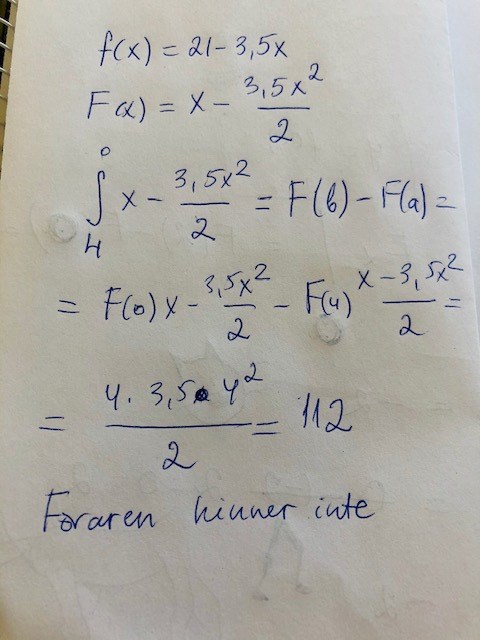 f(x) = 21 - 3,5x
F(x) = x - 3,5x²/2
∫₄⁰ x - 3,5x²/2 = F(b) - F(a) =
= F(0) x - 3,5x²/2 - F(4) x - 3,5x²/2 =
= 4 · 3,5 · 4²/2 = 112
Föraren hinner inte